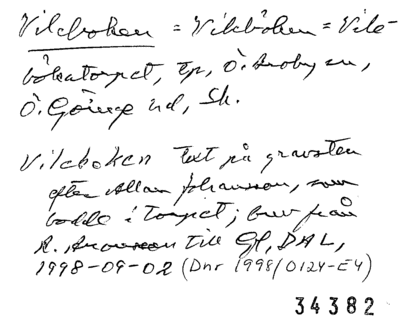 Vileboken = Vileböken = Vile-
bökatorpet, tp, Ö. Broby sn,
Ö. Göinge hd, Sk.
Vileboken text på gravsten
efter Allan Johansson, som
bodde i torpet; brev från
A. Aronsson till Gf, DAL,
1998-09-02 (Dnr 1998/0124-E4)
34382